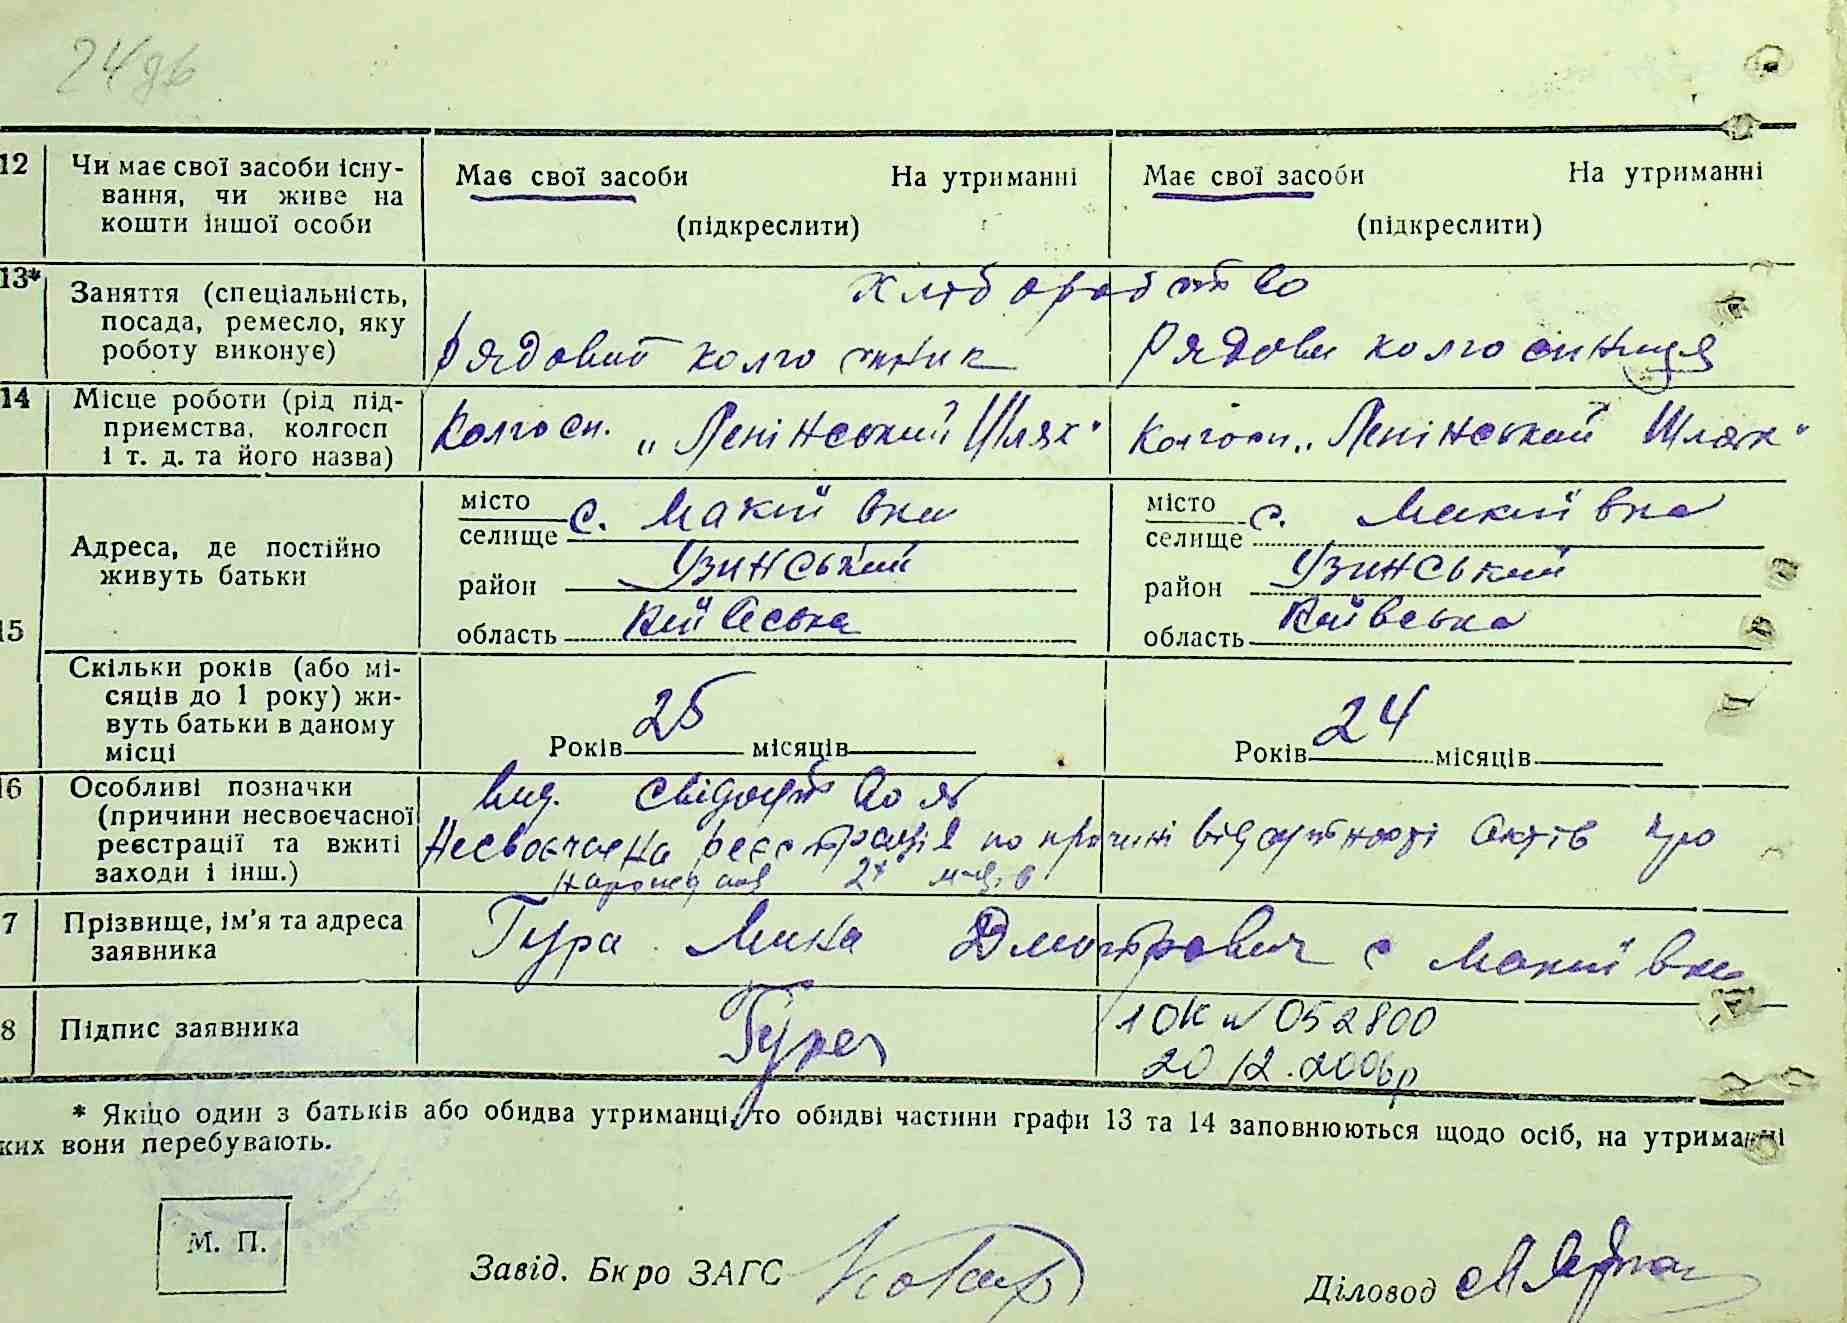 24
12 Чи має свої засоби існу-
вання, чи живе на
кошти іншої особи
Має свої засоби На утриманні
(підкреслити)
Має свої засоби На утриманні
(підкреслити)
13* Заняття (спеціальність,
посада, ремесло, яку
роботу виконує)
Хліборобство
Рядовий колгоспник
Рядова колгоспниця
14 Місце роботи (рід під-
приємства, колгосп
і т. д. та його назва)
Колгосп. „Ленінський Шлях"
Колгосп „Ленінський Шлях"
15 Адреса, де постійно
живуть батьки
місто
селище с. Макіївка
район Узинський
область Київська
місто
селище с. Макіївка
район Узинський
область Київська
Скільки років (або мі-
сяців до 1 року) жи-
вуть батьки в даному
місці
Років 25 місяців
Років 24 місяців
6 Особливі позначки
(причини несвоєчасної
реєстрації та вжиті
заходи і інш.)
Вид. свідоцтво
Несвоєчасна реєстрація по причині відсутності актів про
народження
7 Прізвище, ім'я та адреса
заявника
Гура Дмитрович с Макіївка
8 Підпис заявника
Гура
1ОК № 052800
20 12.2006р
* Якщо один з батьків або обидва утриманці, то обидві частини графи 13 та 14 заповнюються щодо осіб, на утриманні
ких вони перебувають.
М. П.
Завід. Бюро ЗАГС
Діловод